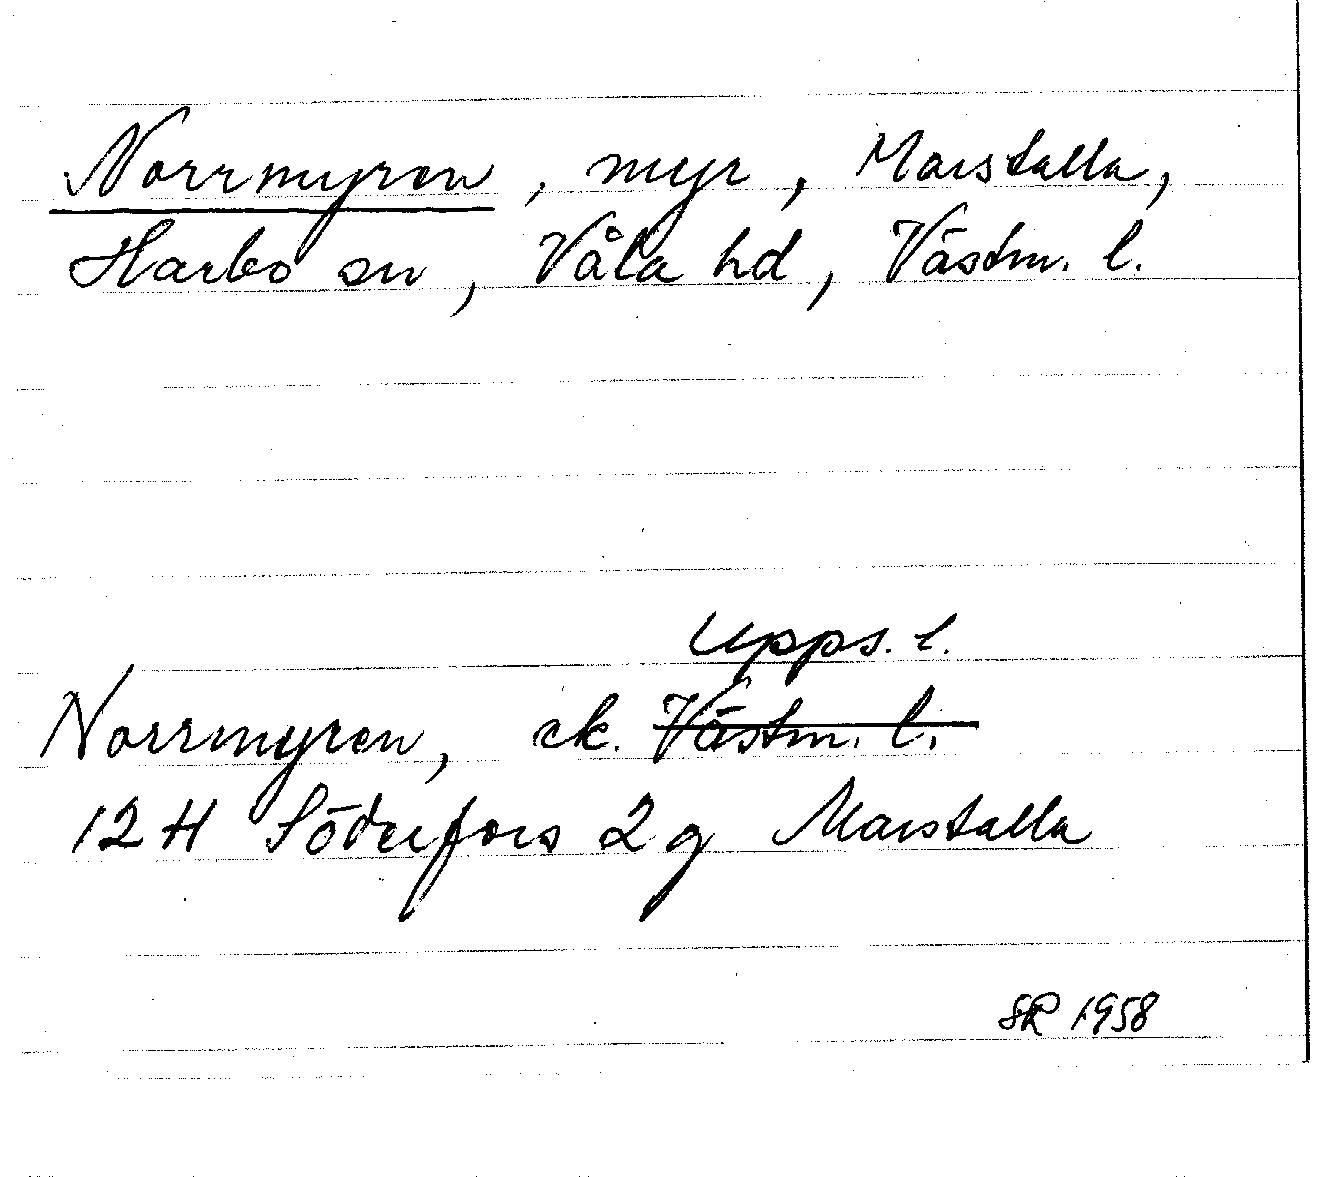 Norrmyren, myr, Marstalla,
Harbo sn, Våla hd, Västm. l.
Upps. l.
Norrmyren, ek. Västm. l.
12 H Söderfors 2 g Marstalla
SR 1958